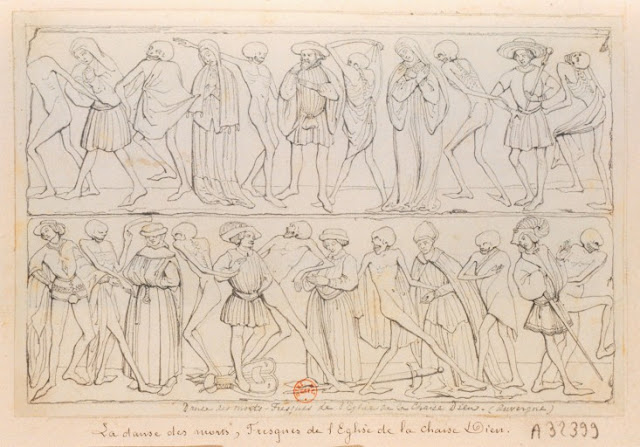 Danse des morts - Fresques de l'Eglise de la Chaise Dieu. (Auvergne)
"La danse des morts", Fresques de l'Eglise de la chaise Dieu.
A 32399